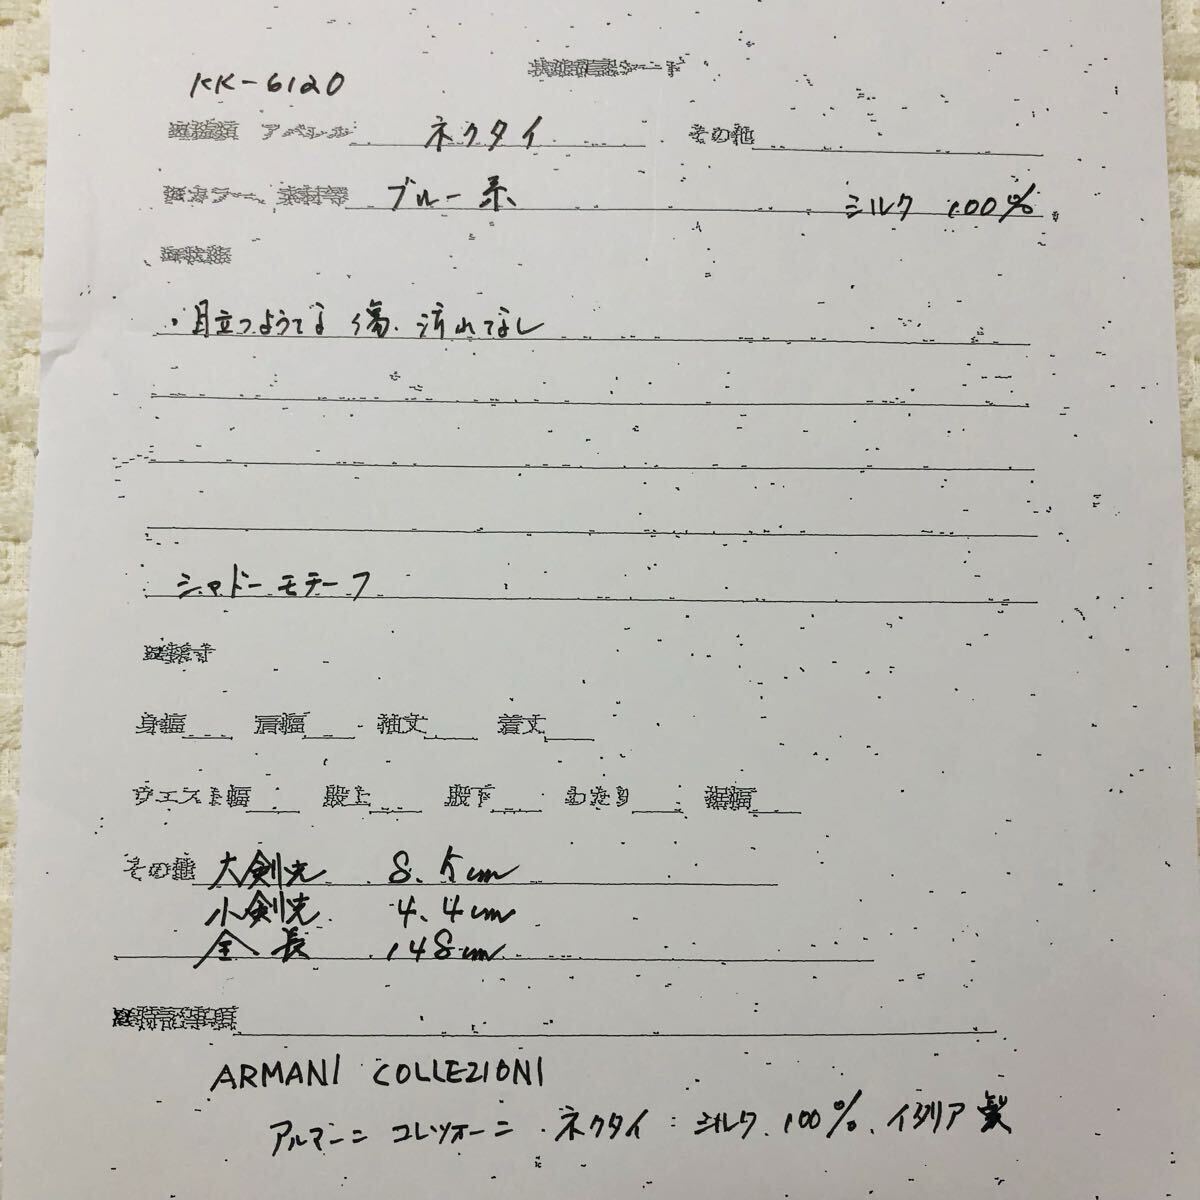 状態確認シート
KK-6120
アパレル ネクタイ その他
カラー、素材等 ブルー系 シルク 100%
・目立つような 傷、汚れなし
シャドーモチーフ
身幅 肩幅 袖丈 着丈
ウエスト幅 股上 股下 わたり 裾幅
その他 大剣先 8.5cm
小剣先 4.4cm
全長 148cm
特記事項
ARMANI COLLEZIONI
アルマーニ コレツィオーニ ・ネクタイ:シルク、100%、イタリア製